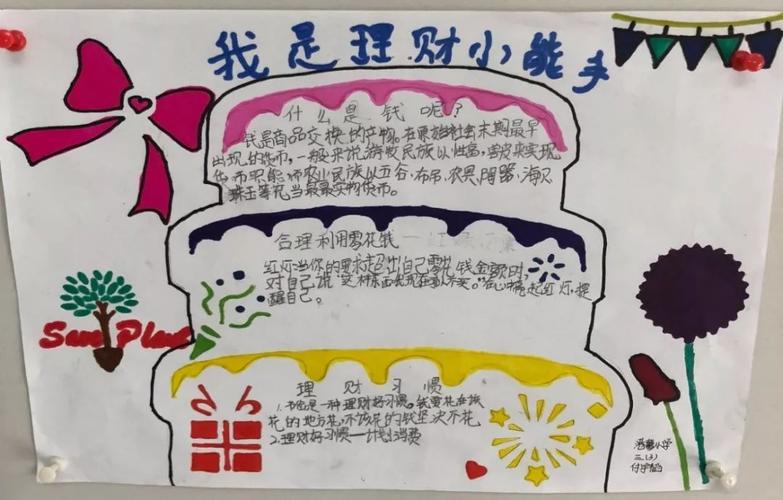 我是理财小能手
什么是钱呢？
钱是商品交换的产物。在原始社会末期最早
出现的货币，一般来说游牧民族以牲畜，兽皮来实现
货币职能，而农业民族以五谷、布帛、农具、陶器、海贝
珠玉等充当最实物货币。
合理利用零花钱
红灯：当你的要求超出自己零花钱金额时，
对自己说"这种东西我现在
心中亮起红灯，提
醒自己。
理财习惯
1.节俭是一种理财好习惯。钱要花在该
花的地方花，不该花的钱坚决不花
2.理财好习惯——计划消费
Save Plant
小学
三、(3)